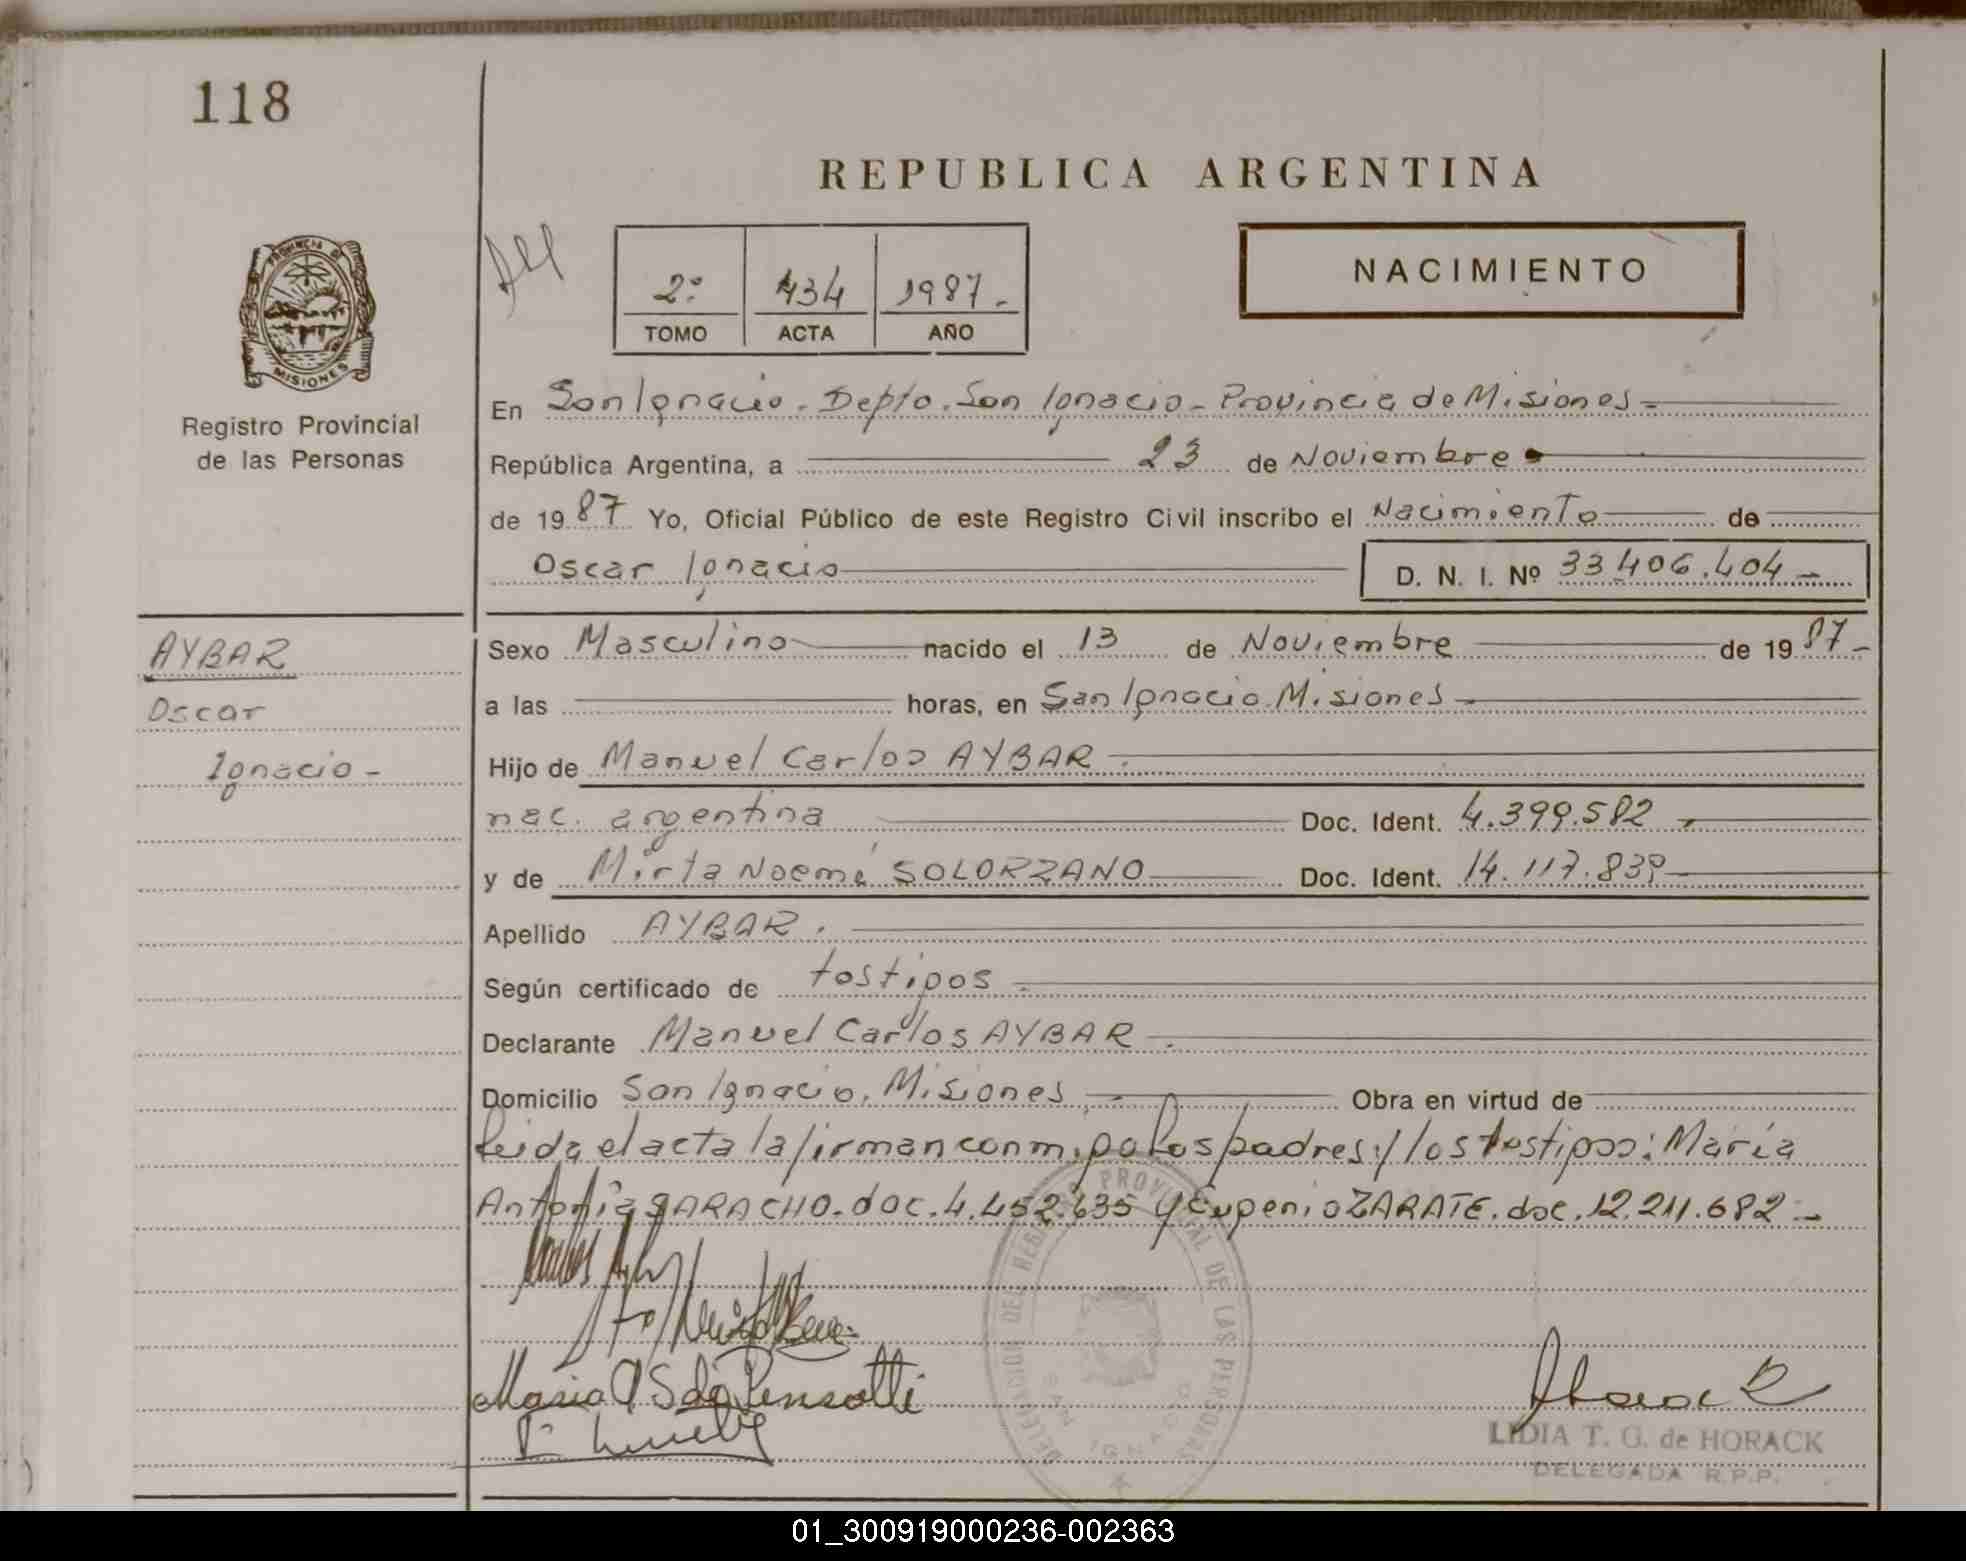 118
REPUBLICA ARGENTINA
PROVINCIA DE
MISIONES
Registro Provincial
de las Personas
2º 434 1987-
TOMO ACTA AÑO
NACIMIENTO
En San Ignacio. Depto. San Ignacio - Provincia de Misiones-
República Argentina, a 23 de Noviembre
de 1987 Yo, Oficial Público de este Registro Civil inscribo el Nacimiento de
Oscar Ignacio D. N. I. Nº 33.406.404-
AYBAR
Oscar
Ignacio-
Sexo Masculino nacido el 13 de Noviembre de 1987-
a las horas, en San Ignacio. Misiones
Hijo de Manuel Carlos AYBAR.
nac. argentina Doc. Ident. 4.399.582
y de Mirta Noemí SOLORZANO Doc. Ident. 14.117.839
Apellido AYBAR.
Según certificado de testigos
Declarante Manuel Carlos AYBAR
Domicilio San Ignacio. Misiones Obra en virtud de
Leida el acta la firman conmigo los padres y los testigos: María
Antonia GARACHO. doc. 4.452.635 y Eugenio ZARATE. doc. 12.211.682-
DELEGACION DEL REGISTRO PROVINCIAL DE LAS PERSONAS
SAN IGNACIO
Maria
LIDIA T. G. de HORACK
DELEGADA R.P.P.
01_300919000236-002363